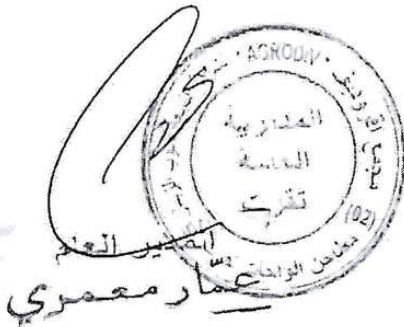 AGRODIV
المديرية
العامة
تقرت
(02)
مطاحن الواحات
المدير العام
عمّار معمري